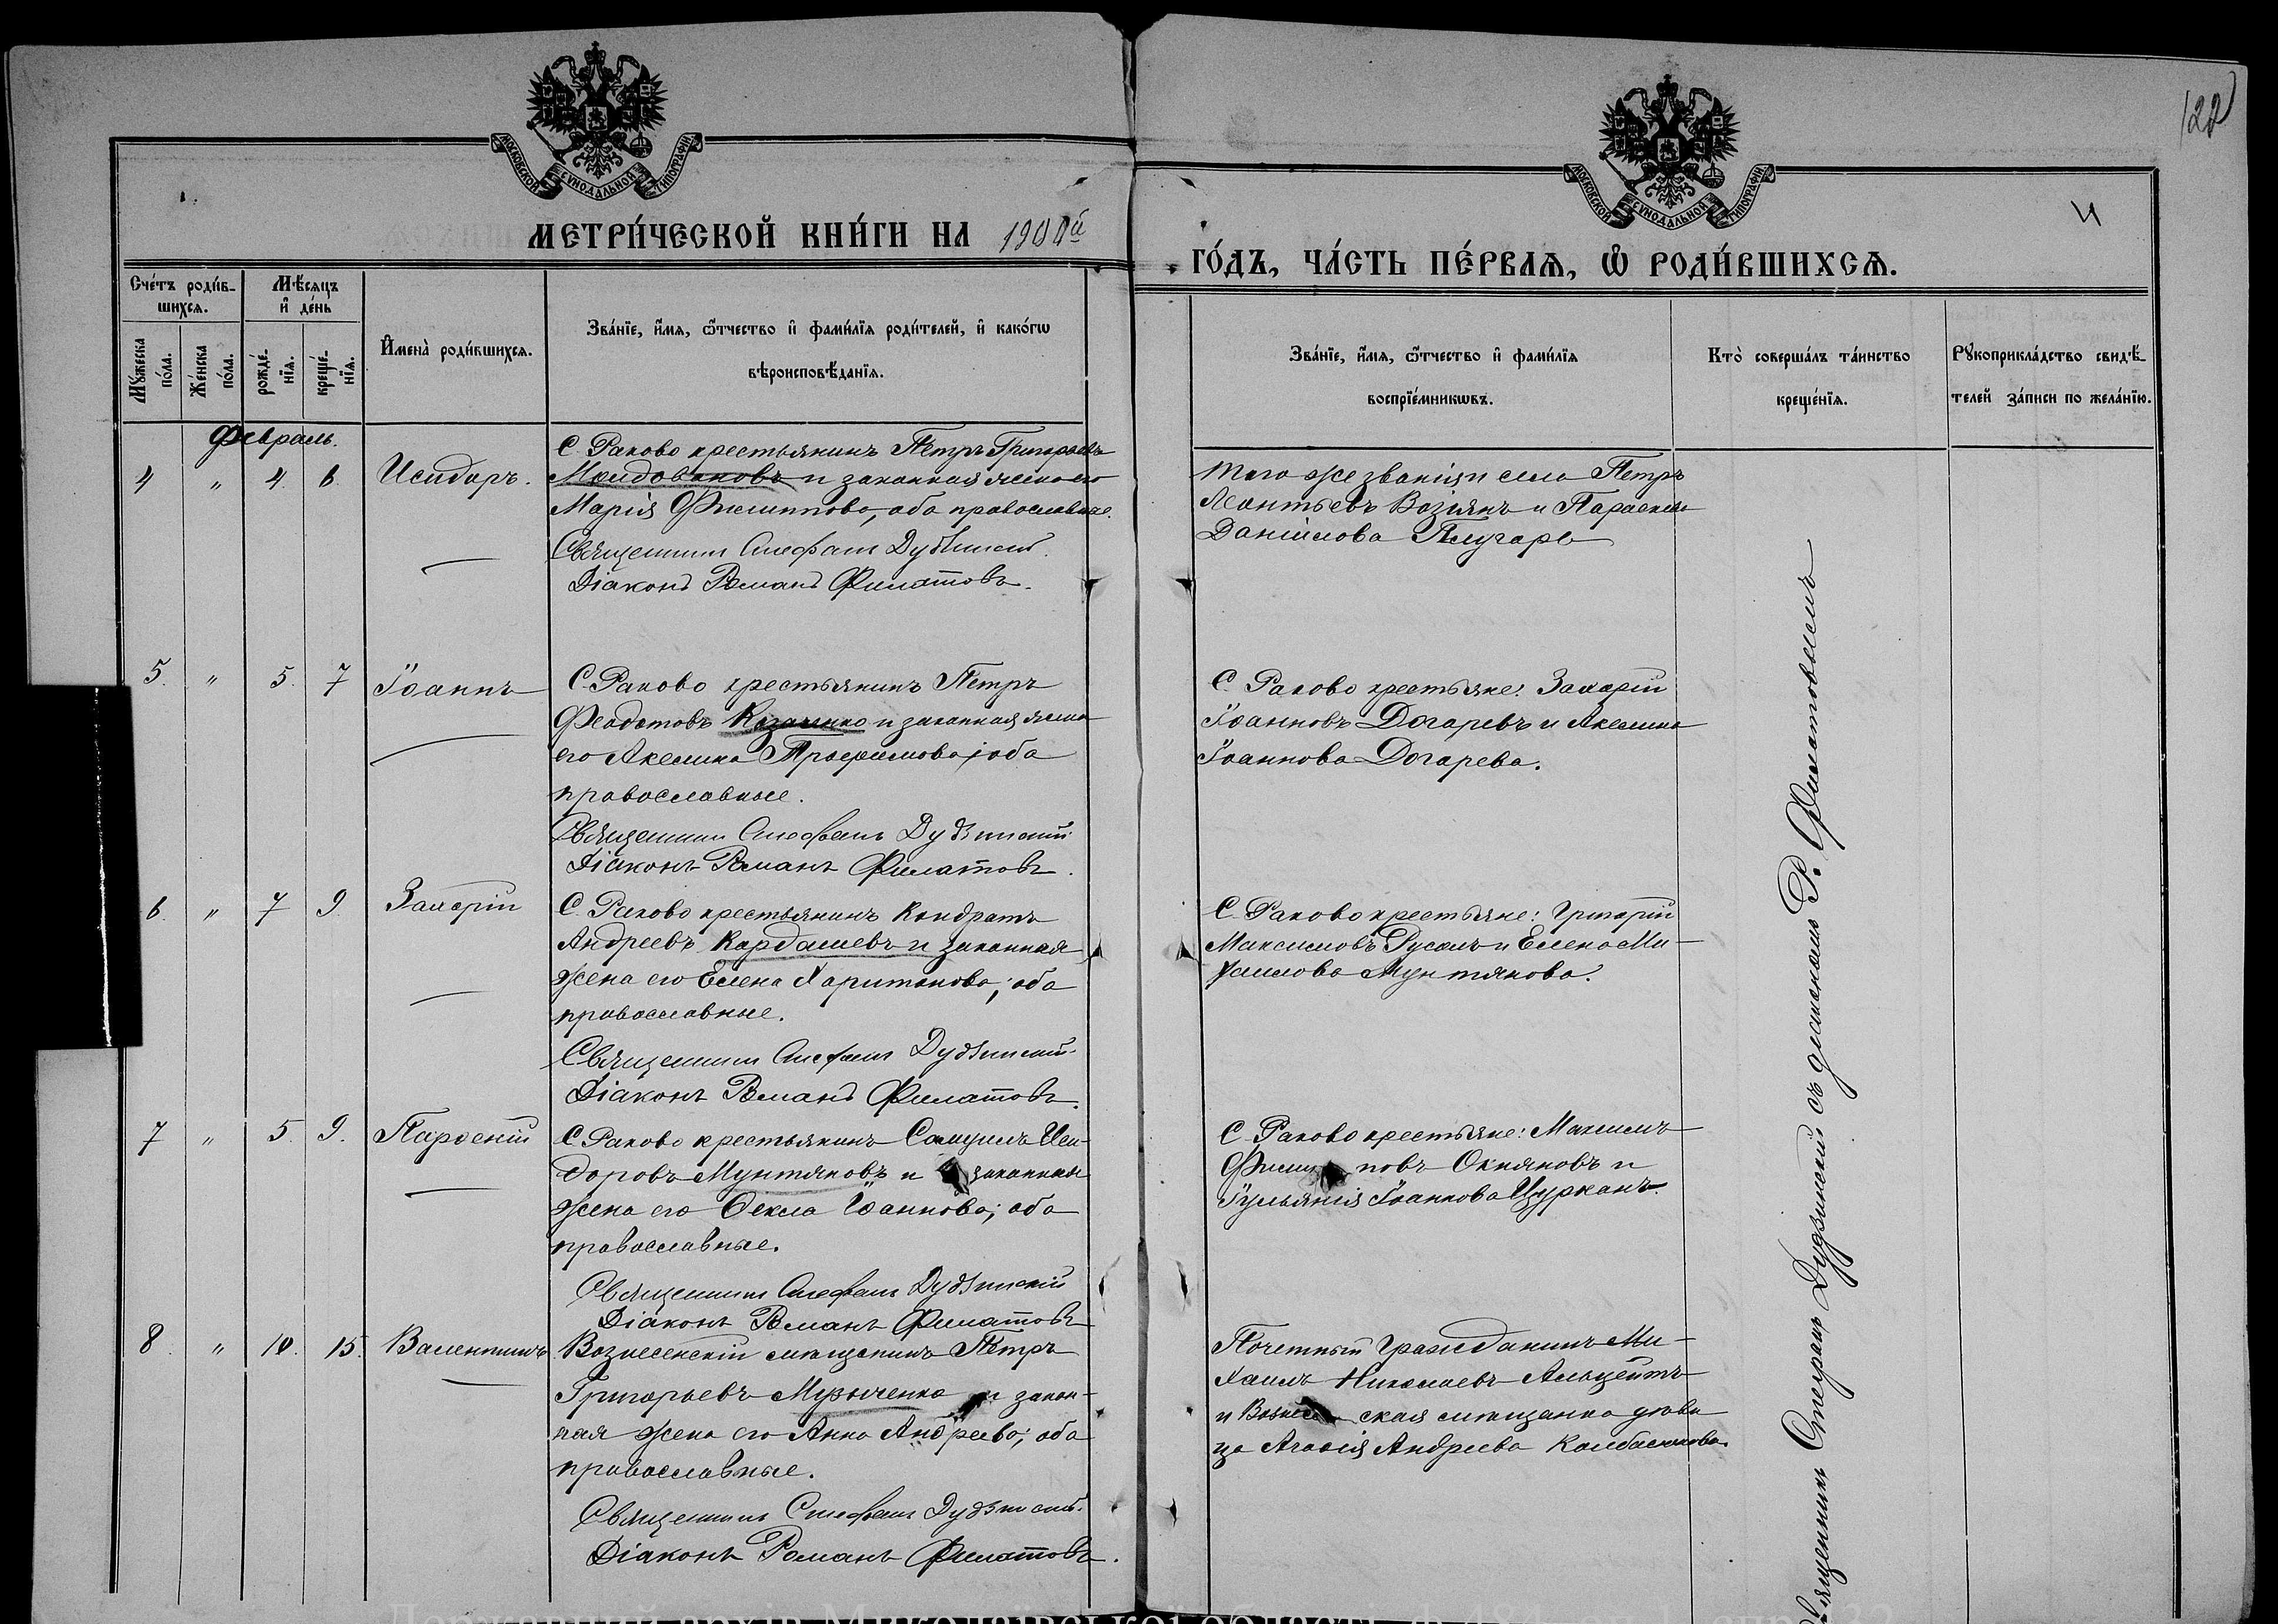 122
МОСКОВСКОЙ СѴНОДАЛЬНОЙ ТИПОГРАФІИ
МОСКОВСКОЙ СѴНОДАЛЬНОЙ ТИПОГРАФІИ
МЕТРИ́ЧЕСКОЙ КНИ́ГИ НА
ГО́ДЪ, ЧА́СТЬ ПЕ́РВАѦ, Ѡ҆ РОДИ́ВШИХСѦ.
Сче́тъ роди́в-
шихсѧ.
Мѣ́сѧцъ
и҆ де́нь
Мꙋ́жеска
по́ла.
Же́нска
по́ла.
рожде́-
нїѧ.
креще́-
нїѧ.
И҆мена̀ роди́вшихсѧ.
Зва́нїе, и҆́мѧ, ѻ҆́тчество и҆ фами́лїѧ роди́телей, и҆ како́гѡ
вѣроисповѣ́данїѧ.
Зва́нїе, и҆́мѧ, ѻ҆́тчество и҆ фами́лїѧ
воспрїе́мникѡвъ.
Кто̀ соверша́лъ та́инство
креще́нїѧ.
Рꙋкоприкла́дство свидѣ́-
телей за́писи по жела́нїю.
Февраль.
4 " 4 6 Исидоръ.
С. Раково крестьянинъ Петръ Григорьевъ
Молдовановъ и законная жена его
Марія Филиппова, оба православные.
Священникъ Стефанъ Дудзинскій
Діаконъ Романъ Филатовъ.
Того же званія и села Петръ
Леонтьевъ Возіянъ и Параскева
Даніилова Плугарь
5. " 5. 7 Іоаннъ
С. Раково крестьянинъ Петръ
Феодотовъ Козаченко и законная жена
его Акелина Трофимова; оба
православные.
Священникъ Стефанъ Дудзинскій
Діаконъ Романъ Филатовъ.
С. Раково крестьяне: Захарій
Іоанновъ Догаревъ и Акелина
Іоаннова Догарева.
6. " 7 9 Захарій
С. Раково крестьянинъ Кондратъ
Андреевъ Кардашевъ и законная
жена его Елена Харитонова; оба
православные.
Священникъ Стефанъ Дудзинскій
Діаконъ Романъ Филатовъ.
С. Раково крестьяне: Григорій
Максимовъ Русолъ и Елена Ми-
хаилова Мунтянова.
7 " 5. 9. Парѳеній
С. Раково крестьянинъ Самуилъ Иси-
доровъ Мунтяновъ и законная
жена его Ѳекла Іоаннова; оба
православные.
Священникъ Стефанъ Дудзинскій
Діаконъ Романъ Филатовъ
С. Раково крестьяне: Максимъ
Филипповъ Окняновъ и
Іульянія Іоаннова Цурканъ.
8. " 10. 15. Валентинъ
Вознесенскій мѣщанинъ Петръ
Григорьевъ Музыченко и закон-
ная жена его Анна Андреева; оба
православные.
Священникъ Стефанъ Дудзинскій
Діаконъ Романъ Филатовъ.
Почетный Гражданинъ Ми-
хаилъ Николаевъ
и Вознесенская мѣщанка дѣви
ца Агафія Андреева
Священникъ Стефанъ Дудзинскій съ діакономъ Р. Филатовымъ